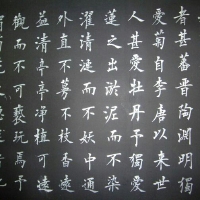 者甚蕃晉陶淵明獨
愛菊自李唐以來世
人甚愛牡丹予獨愛
蓮之出淤泥而不染
濯清漣而不妖中通
外直不蔓不枝香遠
益清亭亭淨植可遠
觀而不可褻玩焉予